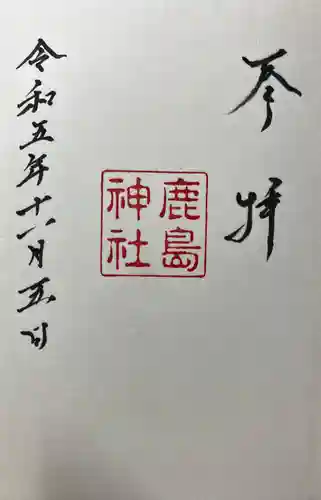 奉拝
鹿島
神社
令和五年十二月五日